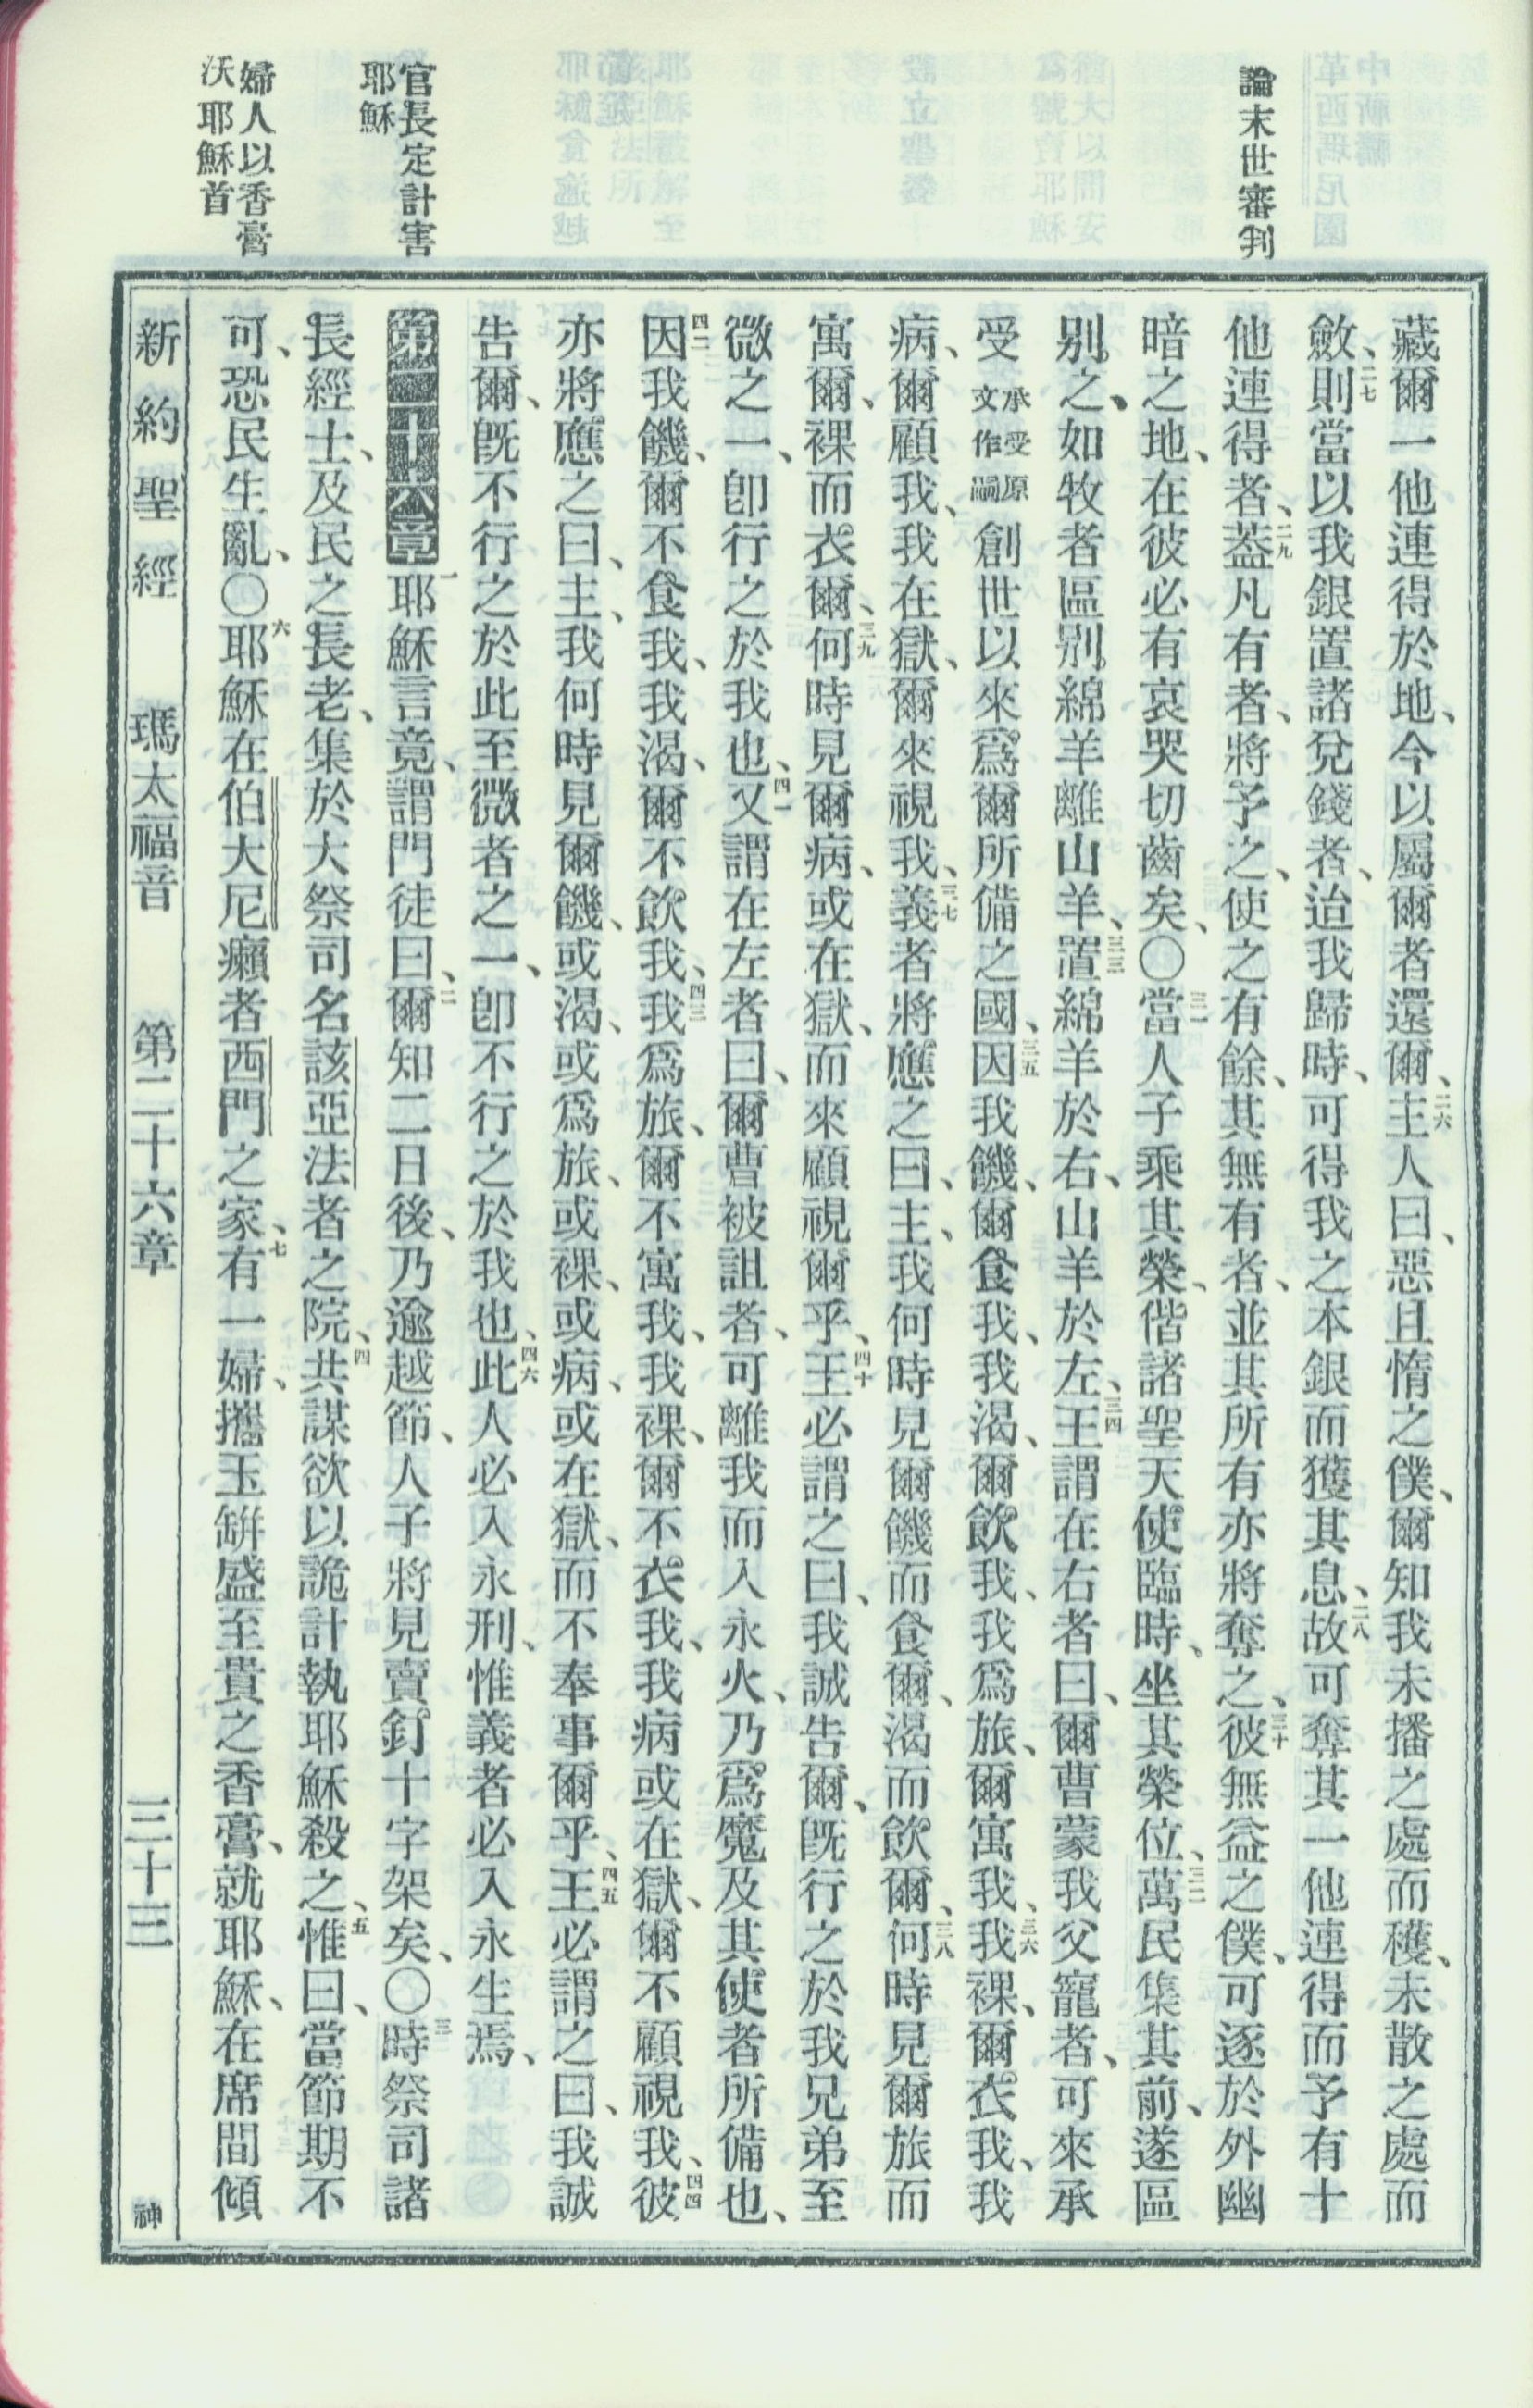 論末世審判
官長定計害
耶穌
婦人以香膏
沃耶穌首
藏爾一他連得於地、今以屬爾者還爾、二六主人曰、惡且惰之僕、爾知我未播之處而穫、未散之處而
斂、二七則當以我銀置諸兌錢者、迨我歸時、可得我之本銀而獲其息、二八故可奪其一他連得而予有十
他連得者、二九蓋凡有者、將予之、使之有餘、其無有者、並其所有亦將奪之、三十彼無益之僕、可逐於外幽
暗之地、在彼必有哀哭切齒矣、〇三一當人子乘其榮、偕諸聖天使臨時、坐其榮位、三二萬民集其前、遂區
別之、如牧者區別綿羊離山羊、三三置綿羊於右、山羊於左、三四王謂在右者曰、爾曹蒙我父寵者、可來承
受承受原文作嗣創世以來、爲爾所備之國、三五因我饑、爾食我、我渴、爾飲我、我爲旅、爾寓我、三六我裸、爾衣我、我
病、爾顧我、我在獄、爾來視我、三七義者將應之曰、主、我何時見爾饑而食爾、渴而飲爾、三八何時見爾旅而
寓爾、裸而衣爾、三九何時見爾病、或在獄、而來顧視爾乎、四十王必謂之曰、我誠告爾、旣行之於我兄弟至
微之一、卽行之於我也、四一又謂在左者曰、爾曹被詛者、可離我而入永火、乃爲魔及其使者所備也、
四二因我饑、爾不食我、我渴、爾不飲我、四三我爲旅、爾不寓我、我裸、爾不衣我、我病或在獄、爾不顧視我、四四彼
亦將應之曰、主、我何時見爾饑、或渴、或爲旅、或裸、或病、或在獄、而不奉事爾乎、四五王必謂之曰、我誠
告爾、旣不行之於此至微者之一、卽不行之於我也、四六此人必入永刑、惟義者必入永生焉、
第二十六章一耶穌言竟、謂門徒曰、二爾知二日後、乃逾越節、人子將見賣釘十字架矣、〇三時祭司諸
長、經士、及民之長老、集於大祭司名該亞法者之院、四共謀欲以詭計執耶穌殺之、五惟曰、當節期不
可、恐民生亂、〇六耶穌在伯大尼癩者西門之家、七有一婦、攜玉缾盛至貴之香膏、就耶穌、在席間傾
新約聖經　瑪太福音　第二十六章　三十三　神